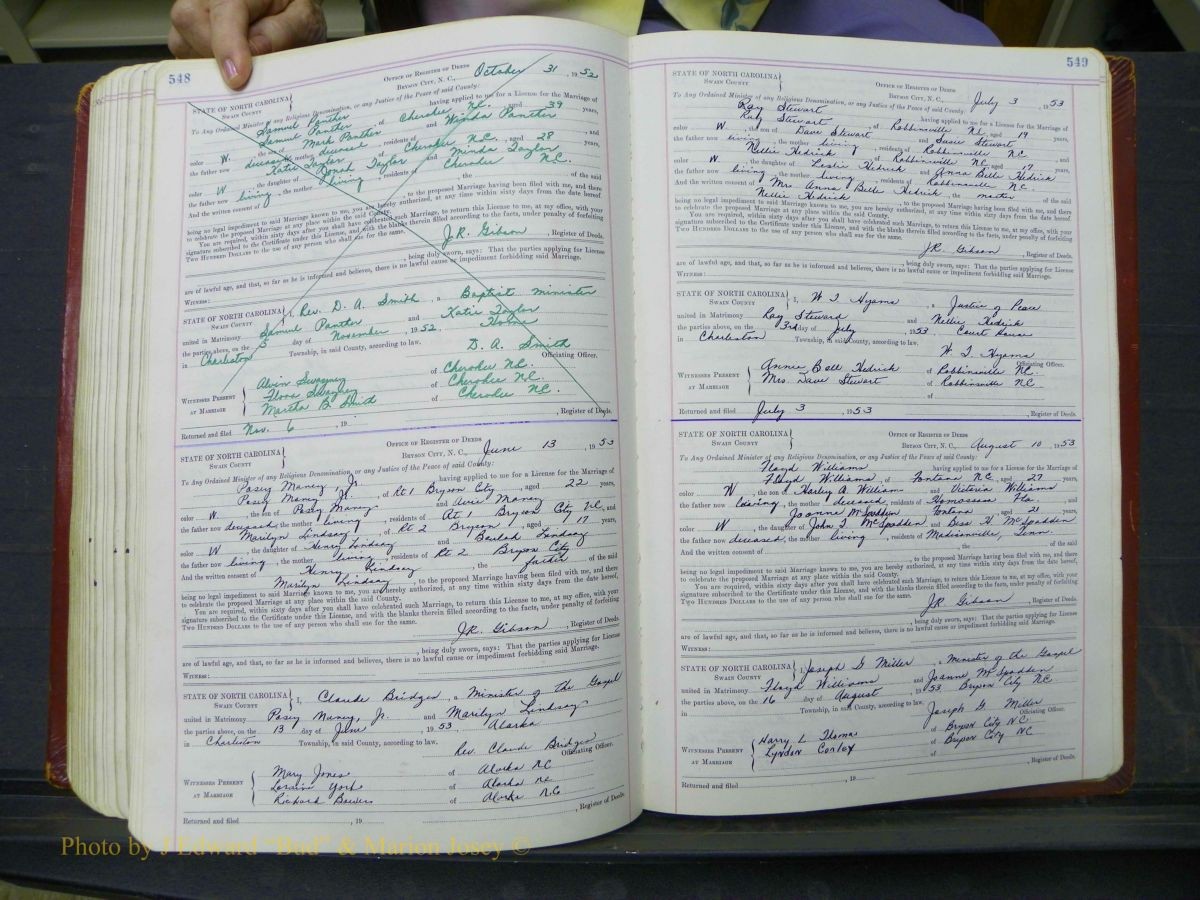 548
OFFICE OF REGISTER OF DEEDS
BRYSON CITY, N. C., October 31, 1952
STATE OF NORTH CAROLINA
SWAIN COUNTY
To Any Ordained Minister of any Religious Denomination, or any Justice of the Peace of said County:
Samuel Panther having applied to me for a License for the Marriage of
Samuel Panther, of Cherokee NC. aged 39 years,
color W., the son of Mark Panther and Winda Panther
the father now deceased, the mother deceased, residents of Cherokee N.C., and
Katie Taylor of Cherokee N.C. aged 28 years,
color W, the daughter of Jonah Taylor and Minda Taylor
the father now living, the mother living, residents of Cherokee N.C.
And the written consent of , the of the said
, to the proposed Marriage having been filed with me, and there
being no legal impediment to said Marriage known to me, you are hereby authorized, at any time within sixty days from the date hereof,
to celebrate the proposed Marriage at any place within the said County.
You are required, within sixty days after you shall have celebrated such Marriage, to return this License to me, at my office, with your
signature subscribed to the Certificate under this License, and with the blanks therein filled according to the facts, under penalty of forfeiting
TWO HUNDRED DOLLARS to the use of any person who shall sue for the same.
J.R. Gibson, Register of Deeds.
, being duly sworn, says: That the parties applying for License
are of lawful age, and that, so far as he is informed and believes, there is no lawful cause or impediment forbidding said Marriage.
WITNESS:
STATE OF NORTH CAROLINA
SWAIN COUNTY
I, Rev. D. A. Smith, a Baptist minister
united in Matrimony Samuel Panther and Katie Taylor
the parties above, on the 5 day of November, 1952. Home
in Charleston Township, in said County, according to law.
D. A. Smith
Officiating Officer.
WITNESSES PRESENT AT MARRIAGE
Alvin Swayney of Cherokee N.C.
Flora Swayney of Cherokee N.C.
Martha B. Smith of Cherokee N.C.
Returned and filed Nov. 6, 19 , Register of Deeds.
OFFICE OF REGISTER OF DEEDS
BRYSON CITY, N. C., June 13, 1953
STATE OF NORTH CAROLINA
SWAIN COUNTY
To Any Ordained Minister of any Religious Denomination, or any Justice of the Peace of said County:
Posey Maney, Jr. having applied to me for a License for the Marriage of
Posey Maney Jr., of Rt 1 Bryson City, aged 22 years,
color W., the son of Posey Maney and Avie Maney
the father now deceased, the mother living, residents of Rt 1 Bryson City N.C., and
Marilyn Lindsay, of Rt 2 Bryson, aged 17 years,
color W, the daughter of Henry Lindsay and Beulah Lindsay
the father now living, the mother living, residents of Rt 2. Bryson City
And the written consent of Henry Lindsay, the father of the said
Marilyn Lindsay, to the proposed Marriage having been filed with me, and there
being no legal impediment to said Marriage known to me, you are hereby authorized, at any time within sixty days from the date hereof,
to celebrate the proposed Marriage at any place within the said County.
You are required, within sixty days after you shall have celebrated such Marriage, to return this License to me, at my office, with your
signature subscribed to the Certificate under this License, and with the blanks therein filled according to the facts, under penalty of forfeiting
TWO HUNDRED DOLLARS to the use of any person who shall sue for the same.
J.R. Gibson, Register of Deeds.
, being duly sworn, says: That the parties applying for License
are of lawful age, and that, so far as he is informed and believes, there is no lawful cause or impediment forbidding said Marriage.
WITNESS:
STATE OF NORTH CAROLINA
SWAIN COUNTY
I, Claude Bridges, a Minister of the Gospel
united in Matrimony Posey Maney, Jr. and Marilyn Lindsay
the parties above, on the 13 day of June, 1953, Alarka
in Charleston Township, in said County, according to law.
Rev. Claude Bridges
Officiating Officer.
WITNESSES PRESENT AT MARRIAGE
Mary Jones of Alarka NC
Loraine York of Alarka NC
Richard Bowers of Alarka N.C
Returned and filed , 19 , Register of Deeds.
549
STATE OF NORTH CAROLINA
SWAIN COUNTY
OFFICE OF REGISTER OF DEEDS
BRYSON CITY, N. C., July 3, 1953
To Any Ordained Minister of any Religious Denomination, or any Justice of the Peace of said County:
Ray Stewart having applied to me for a License for the Marriage of
Ray Stewart, of Robbinsville N.C, aged 19 years,
color W, the son of Dave Stewart and Susie Stewart
the father now living, the mother living, residents of Robbinsville NC, and
Nellie Hedrick of Robbinsville NC aged 17 years,
color W, the daughter of Leslie Hedrick and Anna Belle Hedrick
the father now living, the mother living, residents of Robbinsville NC.
And the written consent of Mrs. Anna Belle Hedrick the mother of the said
Nellie Hedrick, to the proposed Marriage having been filed with me, and there
being no legal impediment to said Marriage known to me, you are hereby authorized, at any time within sixty days from the date hereof,
to celebrate the proposed Marriage at any place within the said County.
You are required, within sixty days after you shall have celebrated such Marriage, to return this License to me, at my office, with your
signature subscribed to the Certificate under this License, and with the blanks therein filled according to the facts, under penalty of forfeiting
TWO HUNDRED DOLLARS to the use of any person who shall sue for the same.
J.R. Gibson, Register of Deeds.
, being duly sworn, says: That the parties applying for License
are of lawful age, and that, so far as he is informed and believes, there is no lawful cause or impediment forbidding said Marriage.
WITNESS:
STATE OF NORTH CAROLINA
SWAIN COUNTY
I, W T Hyams, a Justice of Peace
united in Matrimony Ray Steward and Nellie Hedrick
the parties above, on the 3rd day of July, 1953 Court House
in Charleston Township, in said County, according to law.
W. T. Hyams
Officiating Officer.
WITNESSES PRESENT AT MARRIAGE
Annie Bell Hedrick of Robbinsville NC.
Mrs. Dave Stewart of Robbinsville NC
of
Returned and filed July 3, 1953 , Register of Deeds.
STATE OF NORTH CAROLINA
SWAIN COUNTY
OFFICE OF REGISTER OF DEEDS
BRYSON CITY, N. C., August 10, 1953
To Any Ordained Minister of any Religious Denomination, or any Justice of the Peace of said County:
Floyd Williams having applied to me for a License for the Marriage of
Floyd Williams, of Fontana N.C, aged 27 years,
color W, the son of Harley A. William and Victoria Williams
the father now living, the mother deceased, residents of Homosassa Fla., and
Joanne McSpadden Fontana, aged 21 years,
color W, the daughter of John T McSpadden and Bess H McSpadden
the father now deceased, the mother living, residents of Madisonville, Tenn.
And the written consent of , the of the said
, to the proposed Marriage having been filed with me, and there
being no legal impediment to said Marriage known to me, you are hereby authorized, at any time within sixty days from the date hereof,
to celebrate the proposed Marriage at any place within the said County.
You are required, within sixty days after you shall have celebrated such Marriage, to return this License to me, at my office, with your
signature subscribed to the Certificate under this License, and with the blanks therein filled according to the facts, under penalty of forfeiting
TWO HUNDRED DOLLARS to the use of any person who shall sue for the same.
J.R. Gibson, Register of Deeds.
, being duly sworn, says: That the parties applying for License
are of lawful age, and that, so far as he is informed and believes, there is no lawful cause or impediment forbidding said Marriage.
WITNESS:
STATE OF NORTH CAROLINA
SWAIN COUNTY
I, Joseph G Miller, a Minister of the Gospel
united in Matrimony Floyd Williams and Joanne McSpadden
the parties above, on the 16 day of August, 1953 Bryson City NC
in Township, in said County, according to law.
Joseph G. Miller
Officiating Officer.
WITNESSES PRESENT AT MARRIAGE
Harry L Thoma of Bryson City NC
Lyndon Conley of Bryson City NC
of
Returned and filed , 19 , Register of Deeds.
Photo by J Edward "Bud" & Marion Josey ©